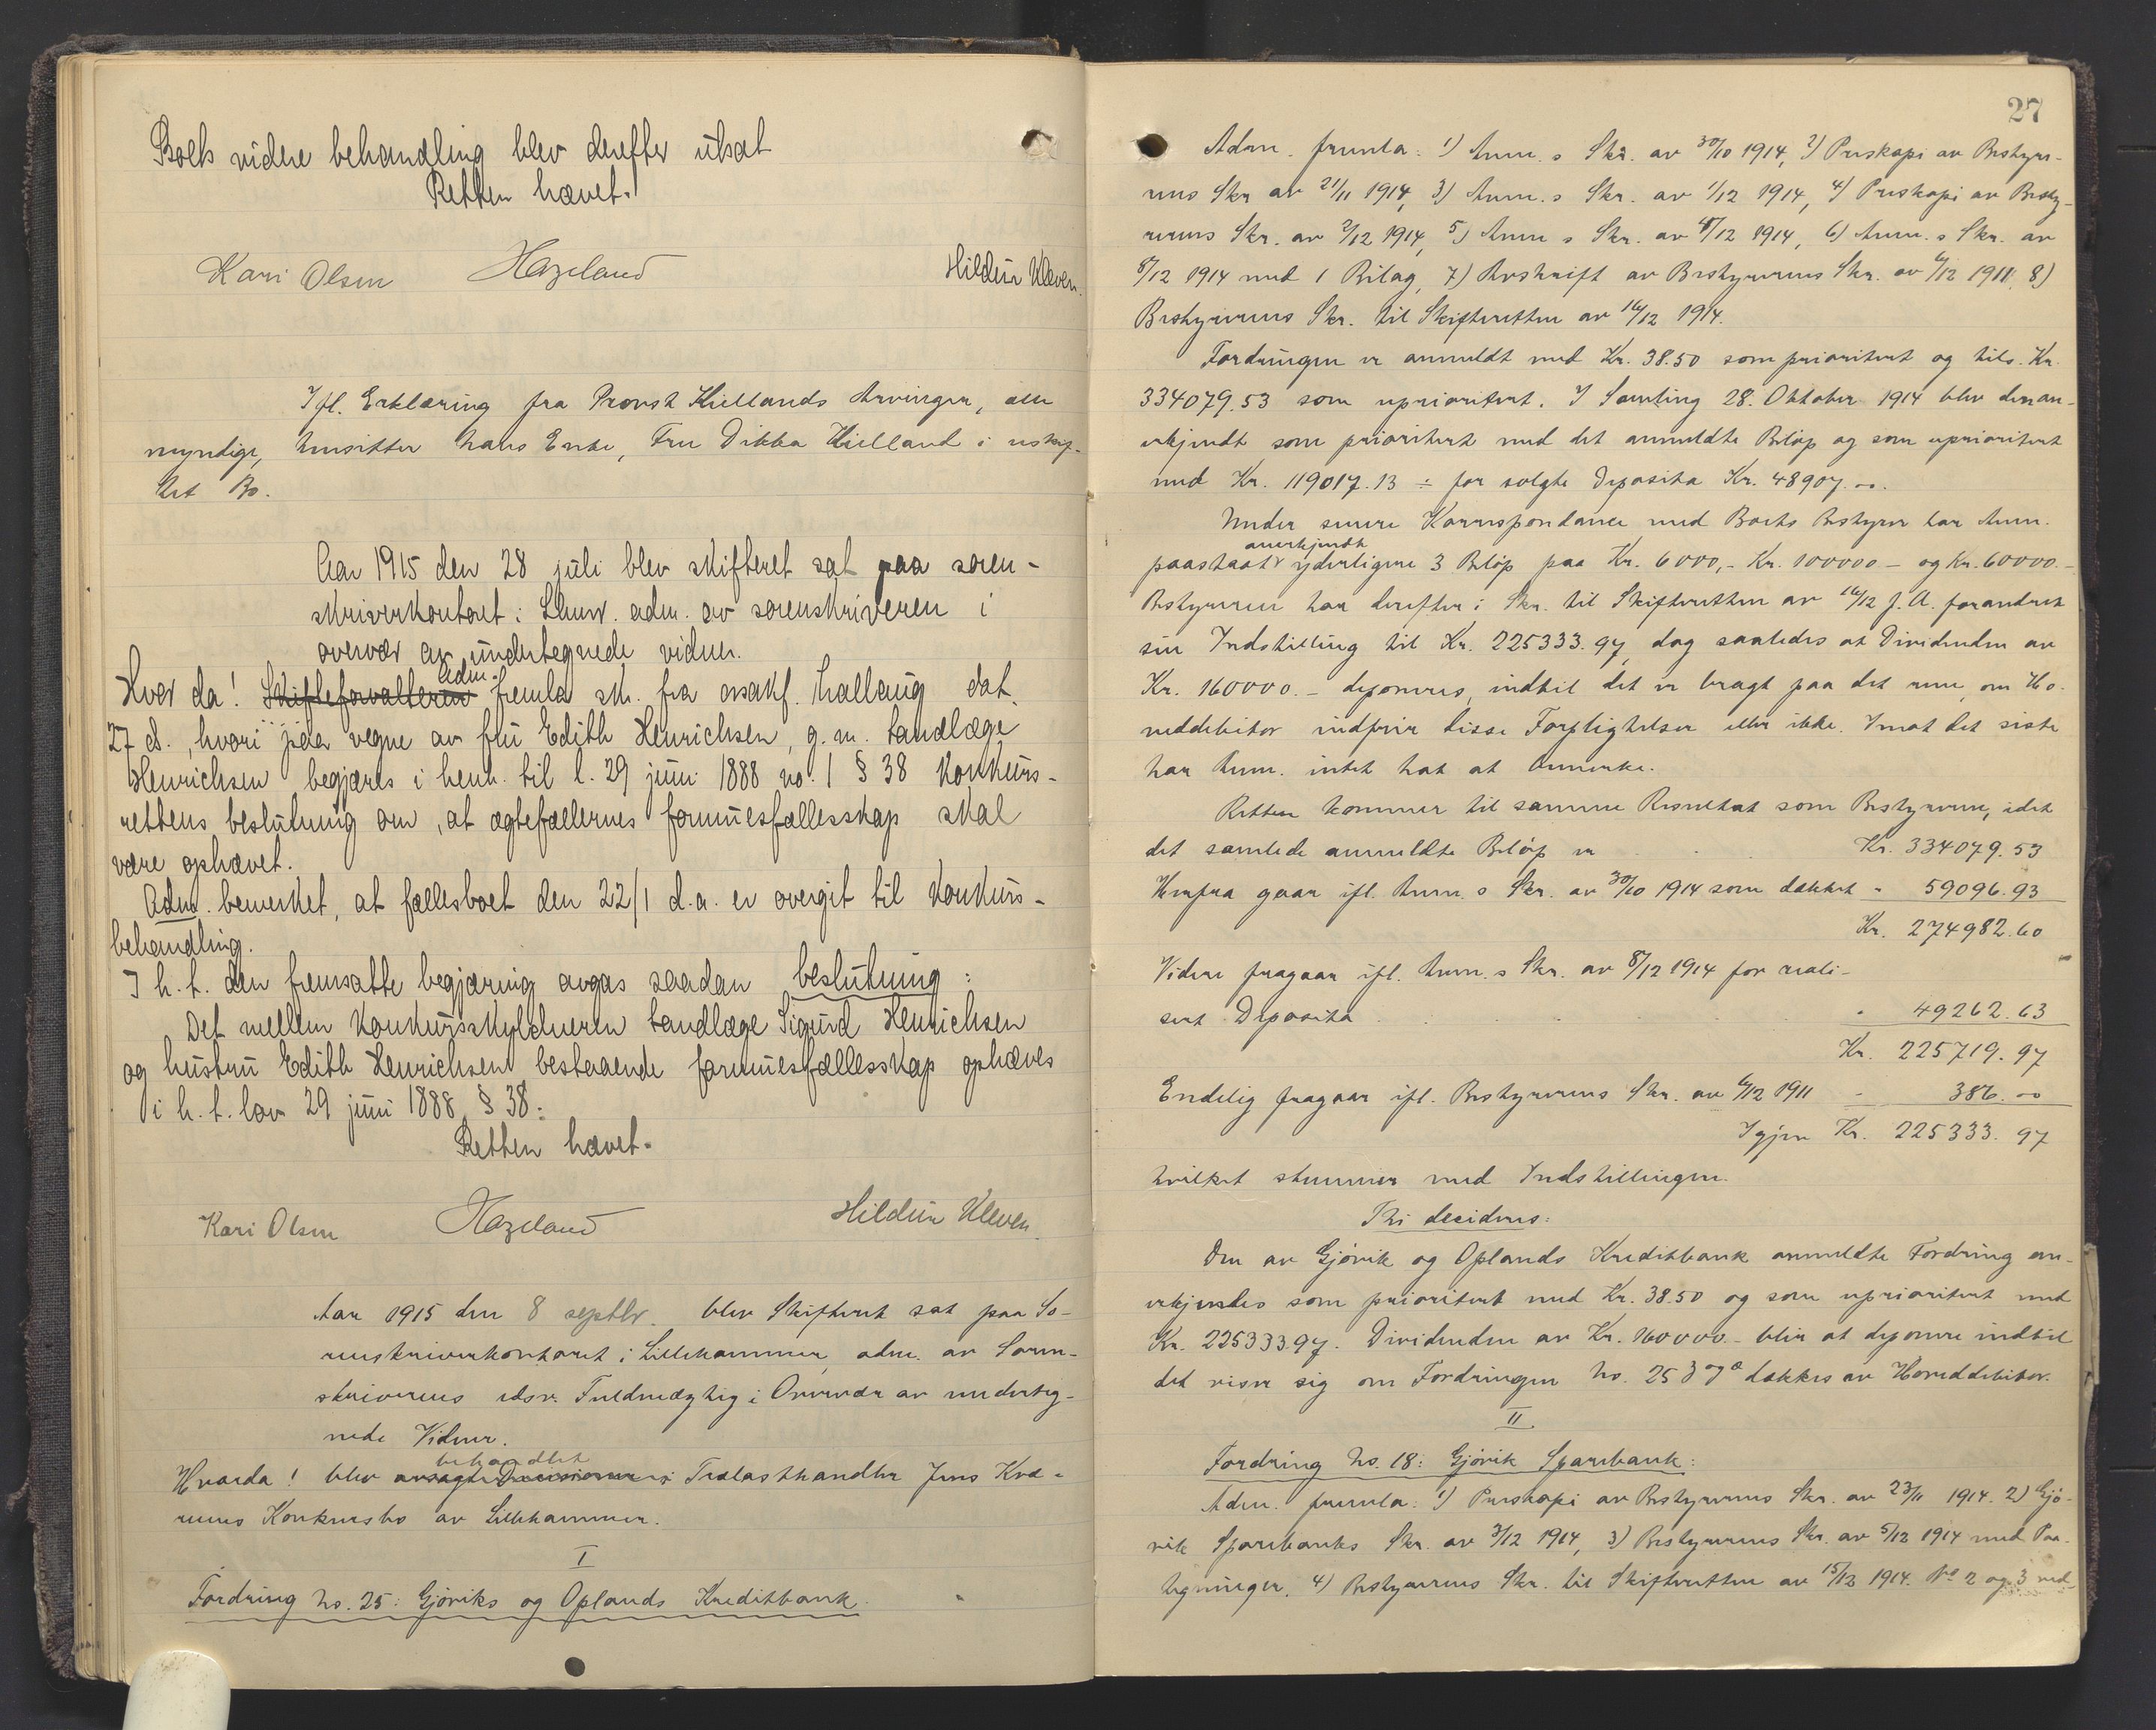 Boets videre behandling blev derefter utsat
Retten hævet.
Kari Olsen Hazeland Hildur Kleven.
Ifl. Erklæring fra Provst Kiellands Arvinger, alle
myndige, hensitter hans Enke, Fru Dikka Kielland i uskif-
tet Bo.
Aar 1915 den 28 juli blev skifteret sat paa soren-
skriverkontoret i Lhmr. adm. av sorenskriveren i
overvær av undertegnede vidner.
Hvor da! Skifteforvalteren Adm. fremla sk. fra o.r.sakf. Hallaug dat.
27 ds., hvori paa vegne av fru Edith Henrichsen, g. m. tandlæge
Henrichsen begjæres i henh. til l. 29 juni 1888 no. 1 § 38 konkurs-
rettens beslutning om, at ægtefællernes formuesfællesskap skal
være ophævet.
Adm. bemerket, at fællesboet den 22/1 d.a. er overgit til konkurs-
behandling.
I h. t. den fremsatte begjæring avgas saadan beslutning:
Det mellem konkursskyldneren tandlæge Sigurd Henrichsen
og hustru Edith Henrichsen bestaaende formuesfællesskap ophæves
i h. t. lov 29 juni 1888 § 38.
Retten hævet.
Kari Olsen Hazeland Hildur Kleven.
Aar 1915 den 8 septbr. blev Skifteret sat paa So-
renskriverkontoret i Lillehammer, adm. av Soren-
skriverens edsv. Fuldmægtig i Overvær av underteg-
nede Vidner.
Hvorda! blev avsagt Decisioner behandlet i Trælasthandler Jens Kvæ-
rnes Konkursbo av Lillehammer.
I
Fordring No. 25: Gjøviks og Oplands Kreditbank.
27
Adm. fremla: 1) Anm.s Skr. av 30/10 1914, 2) Preskopi av Bestyre-
rens Skr av 21/11 1914, 3) Anm.s Skr. av 1/12 1914, 4) Preskopi av Besty-
rerens Skr. av 2/12 1914, 5) Anm s Skr. av 4/12 1914, 6) Anm.s Skr. av
8/12 1914 med 1 Bilag, 7) Avskrift av Bestyrerens Skr. av 6/12 1911, 8)
Bestyrerens Skr. til Skifteretten av 16/12 1914.
Fordringen er anmeldt med Kr. 38.50 som prioritert og tils. Kr.
334079.53 som uprioritert. I Samling 28. Oktober 1914 blev den an-
erkjendt som prioritert med det anmeldte Beløp og som uprioritert
med Kr. 119017.13 ÷ for solgte Deposita Kr. 48907.00.
Under senere Korrespondance med Boets Bestyrer har Anm.
paastaat anerkjendt yderligere 3 Beløp paa Kr. 6000,- Kr. 100000 - og Kr. 60000.-
Bestyreren har derefter i Skr. til Skifteretten av 16/12 f. A. forandret
sin Indstilling til Kr. 225333.97, dog saaledes at Dividenden av
Kr. 160000.- deponeres, indtil det er bragt paa det rene, om Ho-
veddebitor indfrir disse Forpligtelser eller ikke. Imot det siste
har Anm. intet hat at bemerke.
Retten kommer til samme Resultat som Bestyreren, idet
det samlede anmeldte Beløp er Kr. 334079.53
Herfra gaar ifl. Anm.s Skr. av 30/10 1914 som dækket " 59096.93
Kr. 274982.60
Videre fragaar ifl. Anm.s Skr. av 8/12 1914 for reali-
sert Deposita " 49262.63
Kr. 225719.97
Endelig fragaar ifl. Bestyrerens Skr. av 6/12 1911 - 386.00
Igjen Kr. 225333.97
hvilket stemmer med Indstillingen.
Thi decideres:
Den av Gjøvik og Oplands Kreditbank anmeldte Fordring an-
erkjendes som prioritert med Kr. 38.50 og som uprioritert med
Kr. 225333.97. Dividenden av Kr. 160000.- blir at deponere indtil
det viser sig om Fordringen No. 25 3 og dækkes av Hoveddebitor.
II
Fordring No. 18: Gjøvik Sparebank:
Adm. fremla: 1) Preskopi av Bestyrerens Skr. av 23/11 1914. 2) Gjø-
vik Sparebanks Skr. av 3/12 1914, 3) Bestyrerens Skr. av 5/12 1914 med Paa-
tegninger. 4) Bestyrerens Skr. til Skifteretten av 15/12 1914. No 2 og 3 ved-